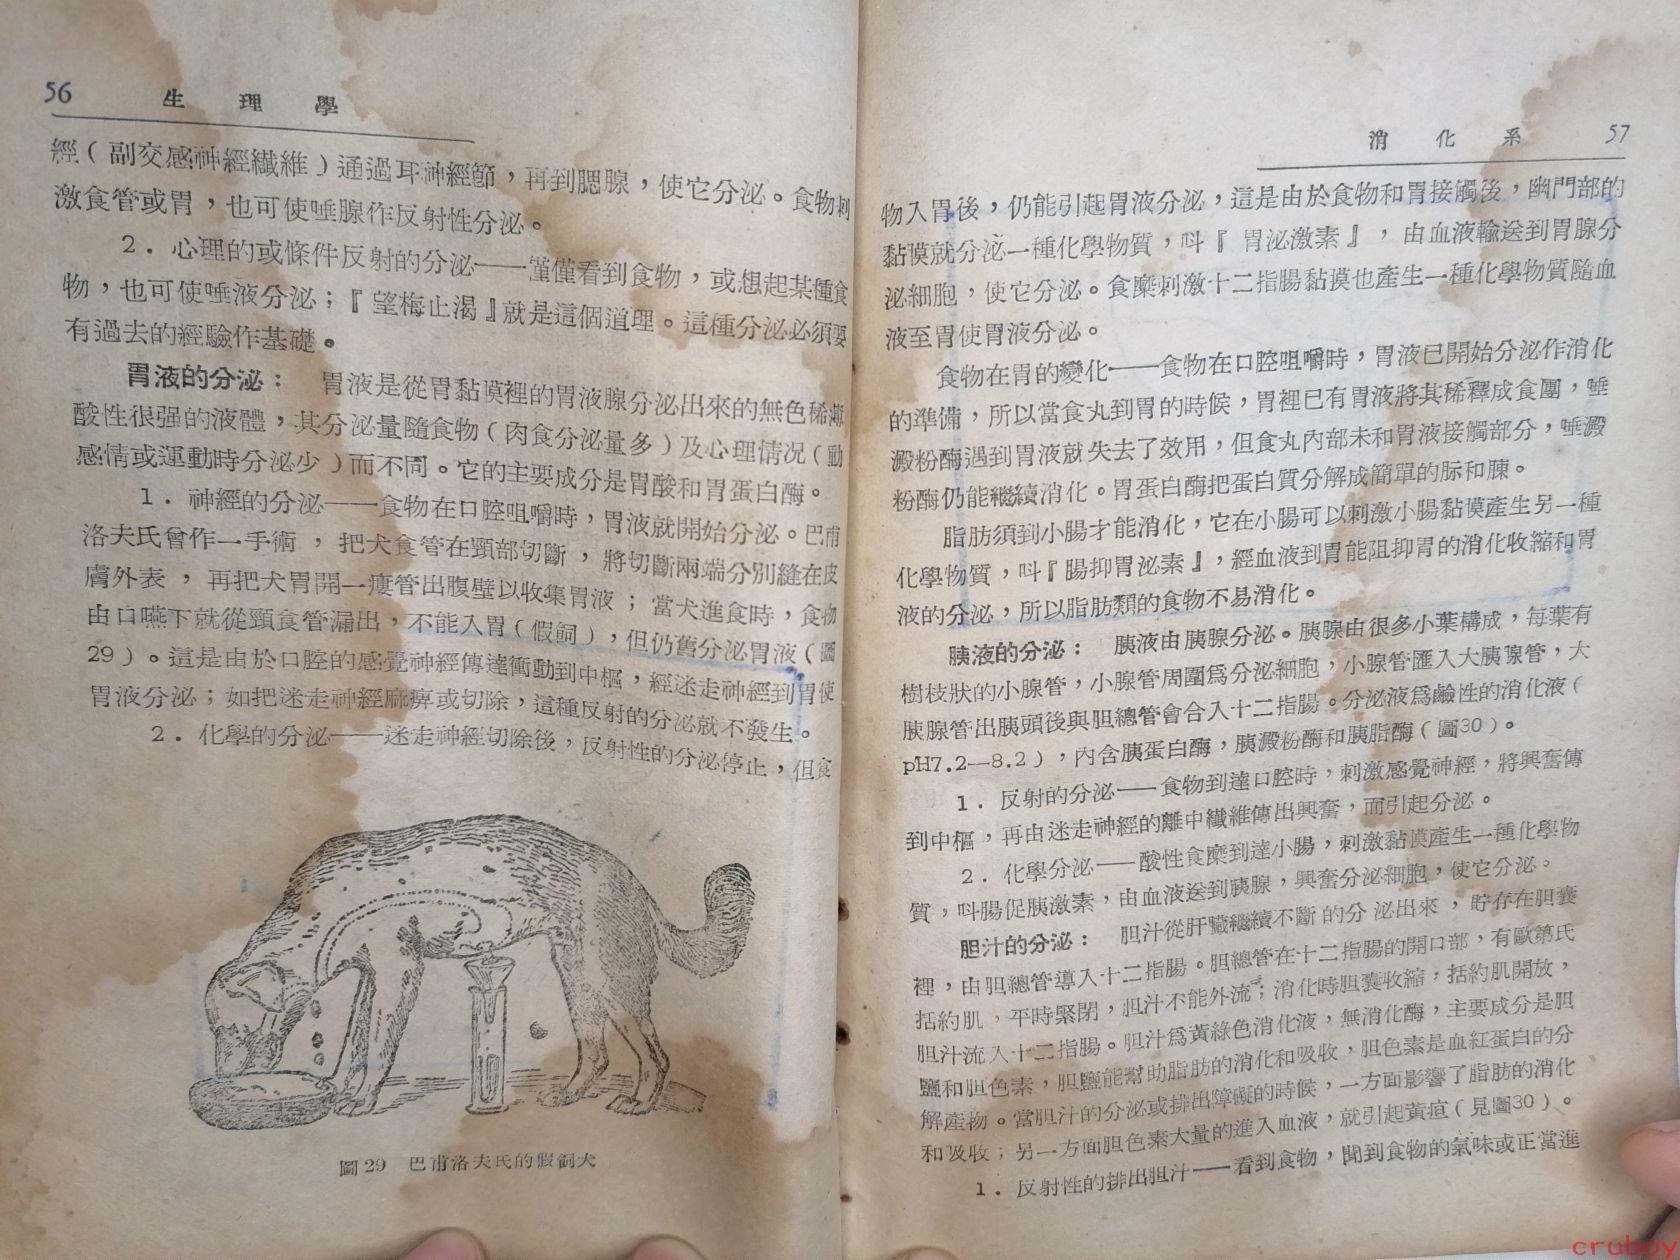 56 生理學
經(副交感神經纖維)通過耳神經節，再到腮腺，使它分泌。食物刺
激食管或胃，也可使唾腺作反射性分泌。
2．心理的或條件反射的分泌——僅僅看到食物，或想起某種食
物，也可使唾液分泌；『望梅止渴』就是這個道理。這種分泌必須要
有過去的經驗作基礎。
胃液的分泌： 胃液是從胃黏膜裡的胃液腺分泌出來的無色稀薄
酸性很强的液體，其分泌量隨食物(肉食分泌量多)及心理情况(動
感情或運動時分泌少)而不同。它的主要成分是胃酸和胃蛋白酶。
1．神經的分泌——食物在口腔咀嚼時，胃液就開始分泌。巴甫
洛夫氏曾作一手術，把犬食管在頸部切斷，將切斷兩端分別縫在皮
膚外表，再把犬胃開一瘻管出腹壁以收集胃液；當犬進食時，食物
由口嚥下就從頸食管漏出，不能入胃(假飼)，但仍舊分泌胃液(圖
29)。這是由於口腔的感覺神經傳達衝動到中樞，經迷走神經到胃使
胃液分泌；如把迷走神經麻痹或切除，這種反射的分泌就不發生。
2．化學的分泌——迷走神經切除後，反射性的分泌停止，但食
圖29 巴甫洛夫氏的假飼犬
消化系 57
物入胃後，仍能引起胃液分泌，這是由於食物和胃接觸後，幽門部的
黏膜就分泌一種化學物質，叫『胃泌激素』，由血液輸送到胃腺分
泌細胞，使它分泌。食糜刺激十二指腸黏膜也產生一種化學物質隨血
液至胃使胃液分泌。
食物在胃的變化——食物在口腔咀嚼時，胃液已開始分泌作消化
的準備，所以當食丸到胃的時候，胃裡已有胃液將其稀釋成食團，唾
澱粉酶遇到胃液就失去了效用，但食丸內部未和胃液接觸部分，唾澱
粉酶仍能繼續消化。胃蛋白酶把蛋白質分解成簡單的䏡和腖。
脂肪須到小腸才能消化，它在小腸可以刺激小腸黏膜產生另一種
化學物質，叫『腸抑胃泌素』，經血液到胃能阻抑胃的消化收縮和胃
液的分泌，所以脂肪類的食物不易消化。
胰液的分泌： 胰液由胰腺分泌。胰腺由很多小葉構成，每葉有
樹枝狀的小腺管，小腺管周圍爲分泌細胞，小腺管匯入大胰腺管，大
胰腺管出胰頭後與胆總管會合入十二指腸。分泌液爲鹼性的消化液(
pH7.2—8.2)，內含胰蛋白酶，胰澱粉酶和胰脂酶(圖30)。
1．反射的分泌——食物到達口腔時，刺激感覺神經，將興奮傳
到中樞，再由迷走神經的離中纖維傳出興奮，而引起分泌。
2．化學分泌——酸性食糜到達小腸，刺激黏膜產生一種化學物
質，叫腸促胰激素，由血液送到胰腺，興奮分泌細胞，使它分泌。
胆汁的分泌： 胆汁從肝臟繼續不斷的分泌出來，貯存在胆囊
裡，由胆總管導入十二指腸。胆總管在十二指腸的開口部，有歐第氏
括約肌，平時緊閉，胆汁不能外流；消化時胆囊收縮，括約肌開放，
胆汁流入十二指腸。胆汁爲黃綠色消化液，無消化酶，主要成分是胆
鹽和胆色素，胆鹽能幫助脂肪的消化和吸收，胆色素是血紅蛋白的分
解產物。當胆汁的分泌或排出障礙的時候，一方面影響了脂肪的消化
和吸收；另一方面胆色素大量的進入血液，就引起黃疸(見圖30)。
1．反射性的排出胆汁——看到食物，聞到食物的氣味或正當進
cruboy